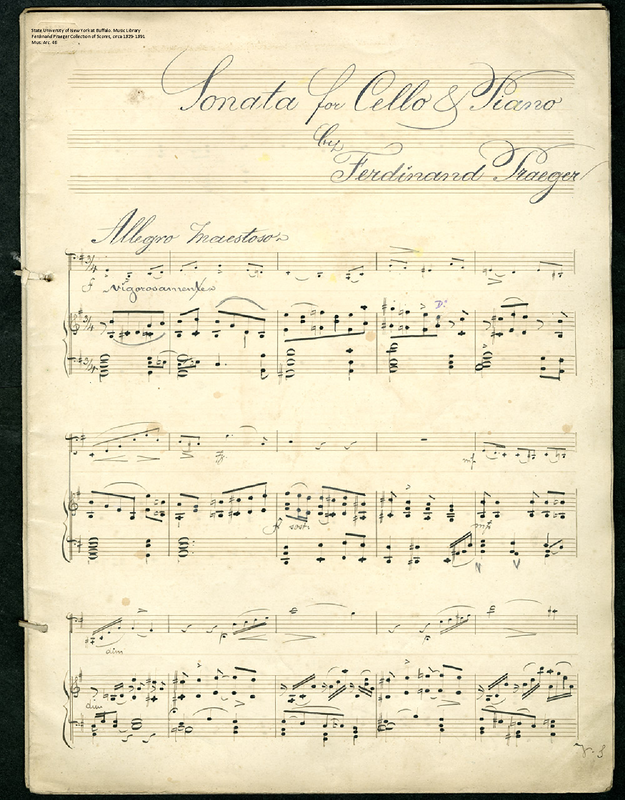 State University of New York at Buffalo. Music Library
Ferdinand Praeger Collection of Scores, circa 1829-1891
Mus. Arc. 46
Sonata for Cello & Piano
by
Ferdinand Praeger
Allegro Maestoso
3/4
f vigorosamente
3/4
D:
3/4
mf
mf
dim
p
p
dim
V. S